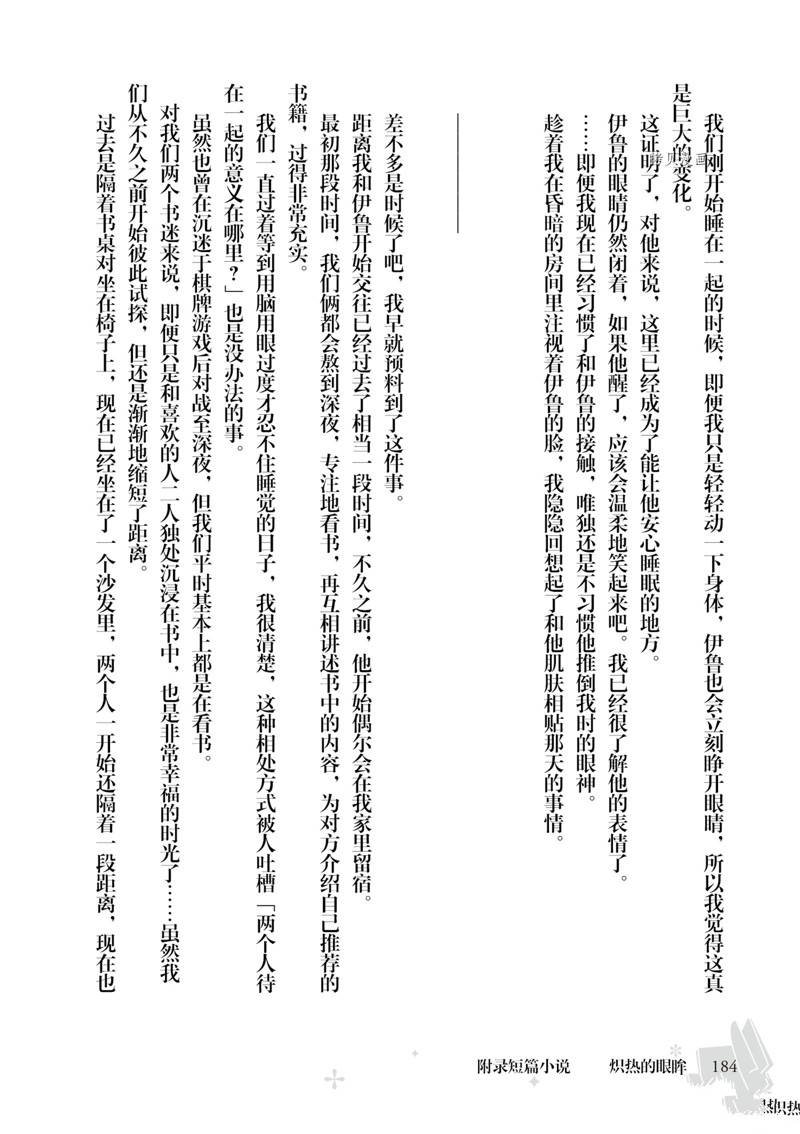 我们刚开始睡在一起的时候，即便我只是轻轻动一下身体，伊鲁也会立刻睁开眼睛，所以我觉得这真
是巨大的变化。
这证明了，对他来说，这里已经成为了能让他安心睡眠的地方。
伊鲁的眼睛仍然闭着，如果他醒了，应该会温柔地笑起来吧。我已经很了解他的表情了。
……即便我现在已经习惯了和伊鲁的接触，唯独还是不习惯他推倒我时的眼神。
趁着我在昏暗的房间里注视着伊鲁的脸，我隐隐回想起了和他肌肤相贴那天的事情。
差不多是时候了吧，我早就预料到了这件事。
距离我和伊鲁开始交往已经过去了相当一段时间，不久之前，他开始偶尔会在我家里留宿。
最初那段时间，我们俩都会熬到深夜，专注地看书，再互相讲述书中的内容，为对方介绍自己推荐的
书籍，过得非常充实。
我们一直过着等到用脑用眼过度才忍不住睡觉的日子，我很清楚，这种相处方式被人吐槽「两个人待
在一起的意义在哪里？」也是没办法的事。
虽然也曾在沉迷于棋牌游戏后对战至深夜，但我们平时基本上都是在看书。
对我们两个书迷来说，即便只是和喜欢的人二人独处沉浸在书中，也是非常幸福的时光了……虽然我
们从不久之前开始彼此试探，但还是渐渐地缩短了距离。
过去是隔着书桌对坐在椅子上，现在已经坐在了一个沙发里，两个人一开始还隔着一段距离，现在也
附录短篇小说 炽热的眼眸 184